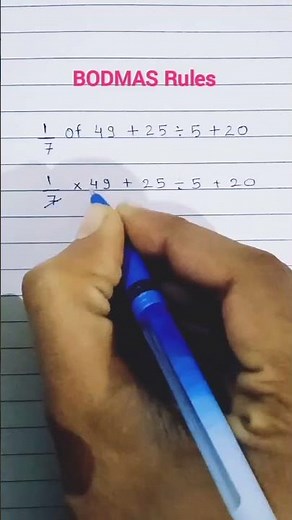 BODMAS Rules
1/7 of 49 + 25 ÷ 5 + 20
1/7 × 49 + 25 ÷ 5 + 20